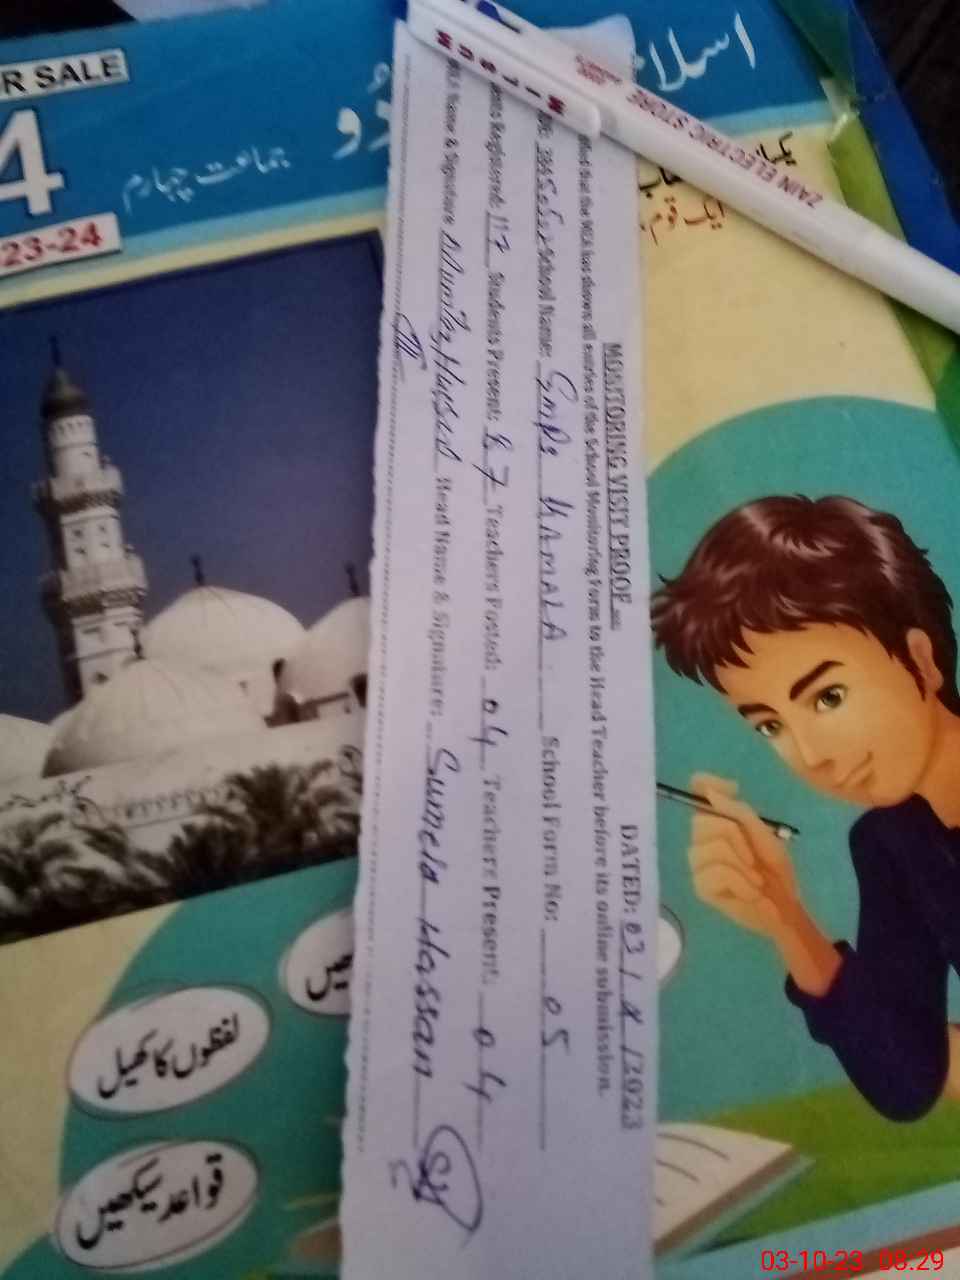 MONITORING VISIT PROOF
DATED: 03 / X / 2023
that the MEA has shown all entries of the School Monitoring Form to the Head Teacher before its online submission.
School Name: GMPS KAMALA School Form No: 05
Registered: 117 Students Present: 87 Teachers Posted: 04 Teachers Present: 04
Name & Signature Mumtaz Hussain Head Name & Signature: Sumeia Hassan
WINSUM
ZAIN ELECTRIC STORE
R SALE
4
23-24
جماعت چہارم
ایک قوم،
لفظوں کا کھیل
قواعد سیکھیں
03-10-23 08:29